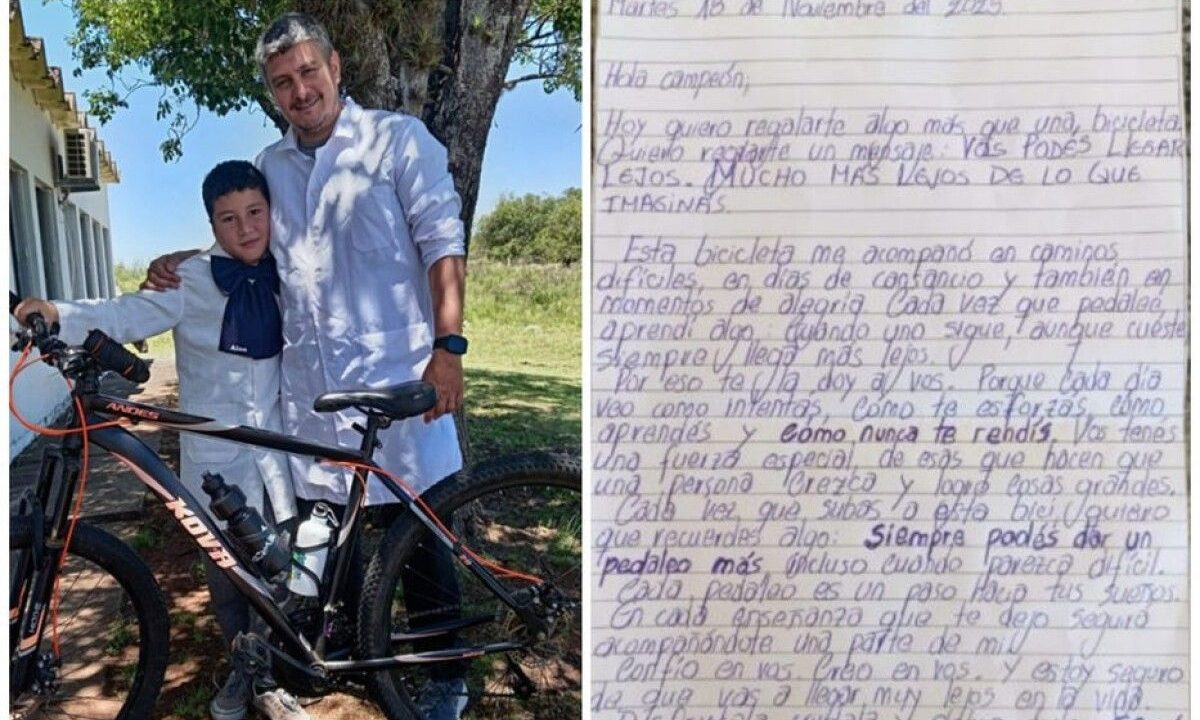 Alan
ANDES
KOVA
Martes 18 de Noviembre del 2025.
Hola campeón;
Hoy quiero regalarte algo más que una bicicleta.
Quiero regalarte un mensaje: VOS PODÉS LLEGAR
LEJOS. MUCHO MÁS LEJOS DE LO QUE
IMAGINAS.
Esta bicicleta me acompañó en caminos
difíciles, en días de cansancio y también en
momentos de alegria Cada vez que pedaleé,
aprendí algo: Cuando uno sigue, aunque cueste
siempre llega más lejos.
Por eso te la doy a vos. Porque cada día
veo como intentas, Cómo te esforzás, cómo
aprendés y cómo nunca te rendís. Vos tenés
una fuerza especial, de esas que hacen que
una persona crezca y logre cosas grandes.
Cada vez que subas a esta bici, quiero
que recuerdes algo: Siempre podés dar un
pedaleo más incluso cuando parezca difícil.
Cada pedaleo es un paso hacia tus sueños.
En cada enseñanza que te dejo seguirá
acompañándote una parte de mí
Confío en vos. Creo en vos. y estoy seguro
de que vas a llegar muy lejos en la vida.